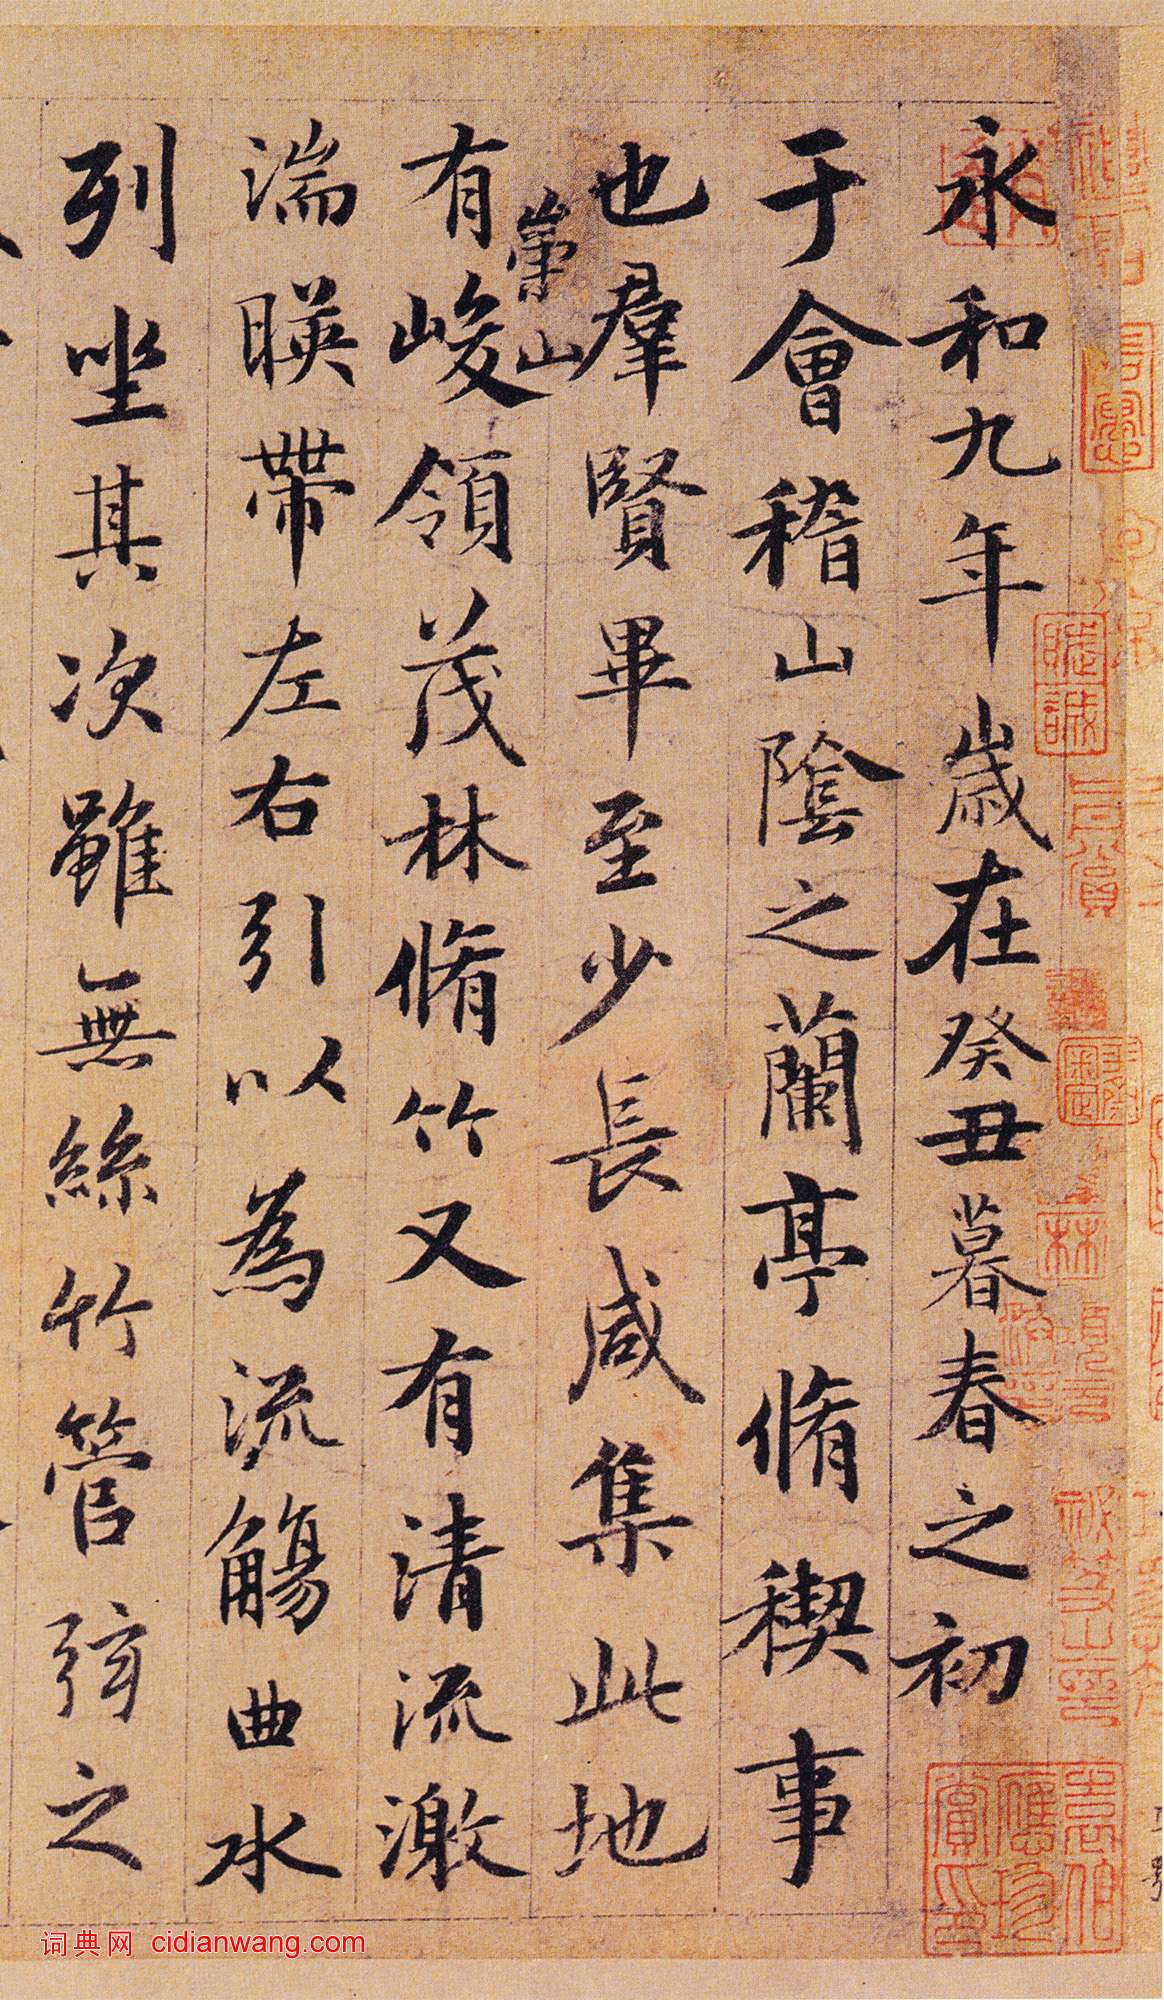 永和九年歲在癸丑暮春之初
于會稽山陰之蘭亭脩稧事
也羣賢畢至少長咸集此地
崇山
有峻領茂林脩竹又有清流激
湍暎帶左右引以為流觴曲水
列坐其次雖無絲竹管弦之
词典网 cidianwang.com